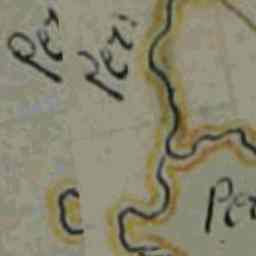 Per
Peri
Per